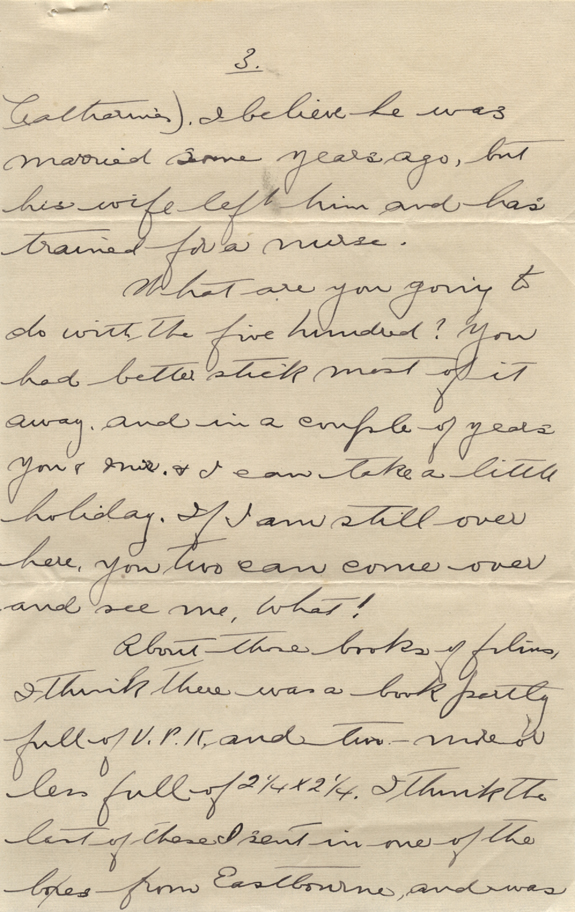 3.
Catharines). I believe he was
married some years ago, but
his wife left him and has
trained for a nurse.
What are you going to
do with the five hundred? You
had better stick most of it
away, and in a couple of years
you & & I can take a little
holiday. If I am still over
here, you two can come over
and see me, What!
About those books of films,
I think there was a book partly
full of V.P.K, and two - more or
less full of 2 1/4 x 2 1/4. I think the
last of these I sent in one of the
boxes from Eastbourne, and was